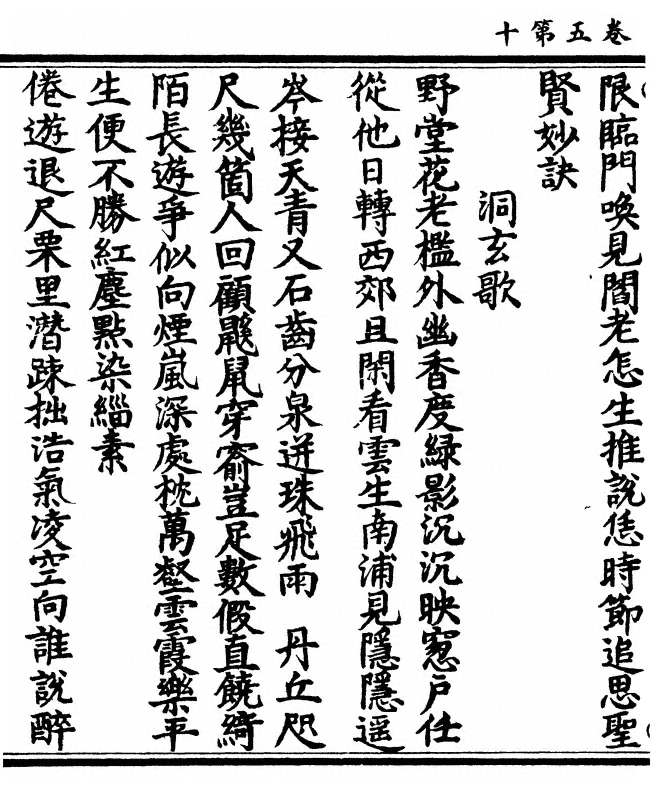 卷五第十
限臨門喚見閻老怎生推說恁時節追思聖
賢妙訣
洞玄歌
野堂花老檻外幽香度綠影沉沉映窻戶任
從他日轉西郊且閑看雲生南浦見隱隱遥
岑接天青又石齒分泉迸珠飛雨 丹丘咫
尺幾箇人回顧鼷鼠穿窬豈足數假直饒綺
陌長遊爭似向煙嵐深處枕萬壑雲霞樂平
生便不勝紅塵點染緇素
倦遊退尺栗里潛踈拙浩氣凌空向誰說醉